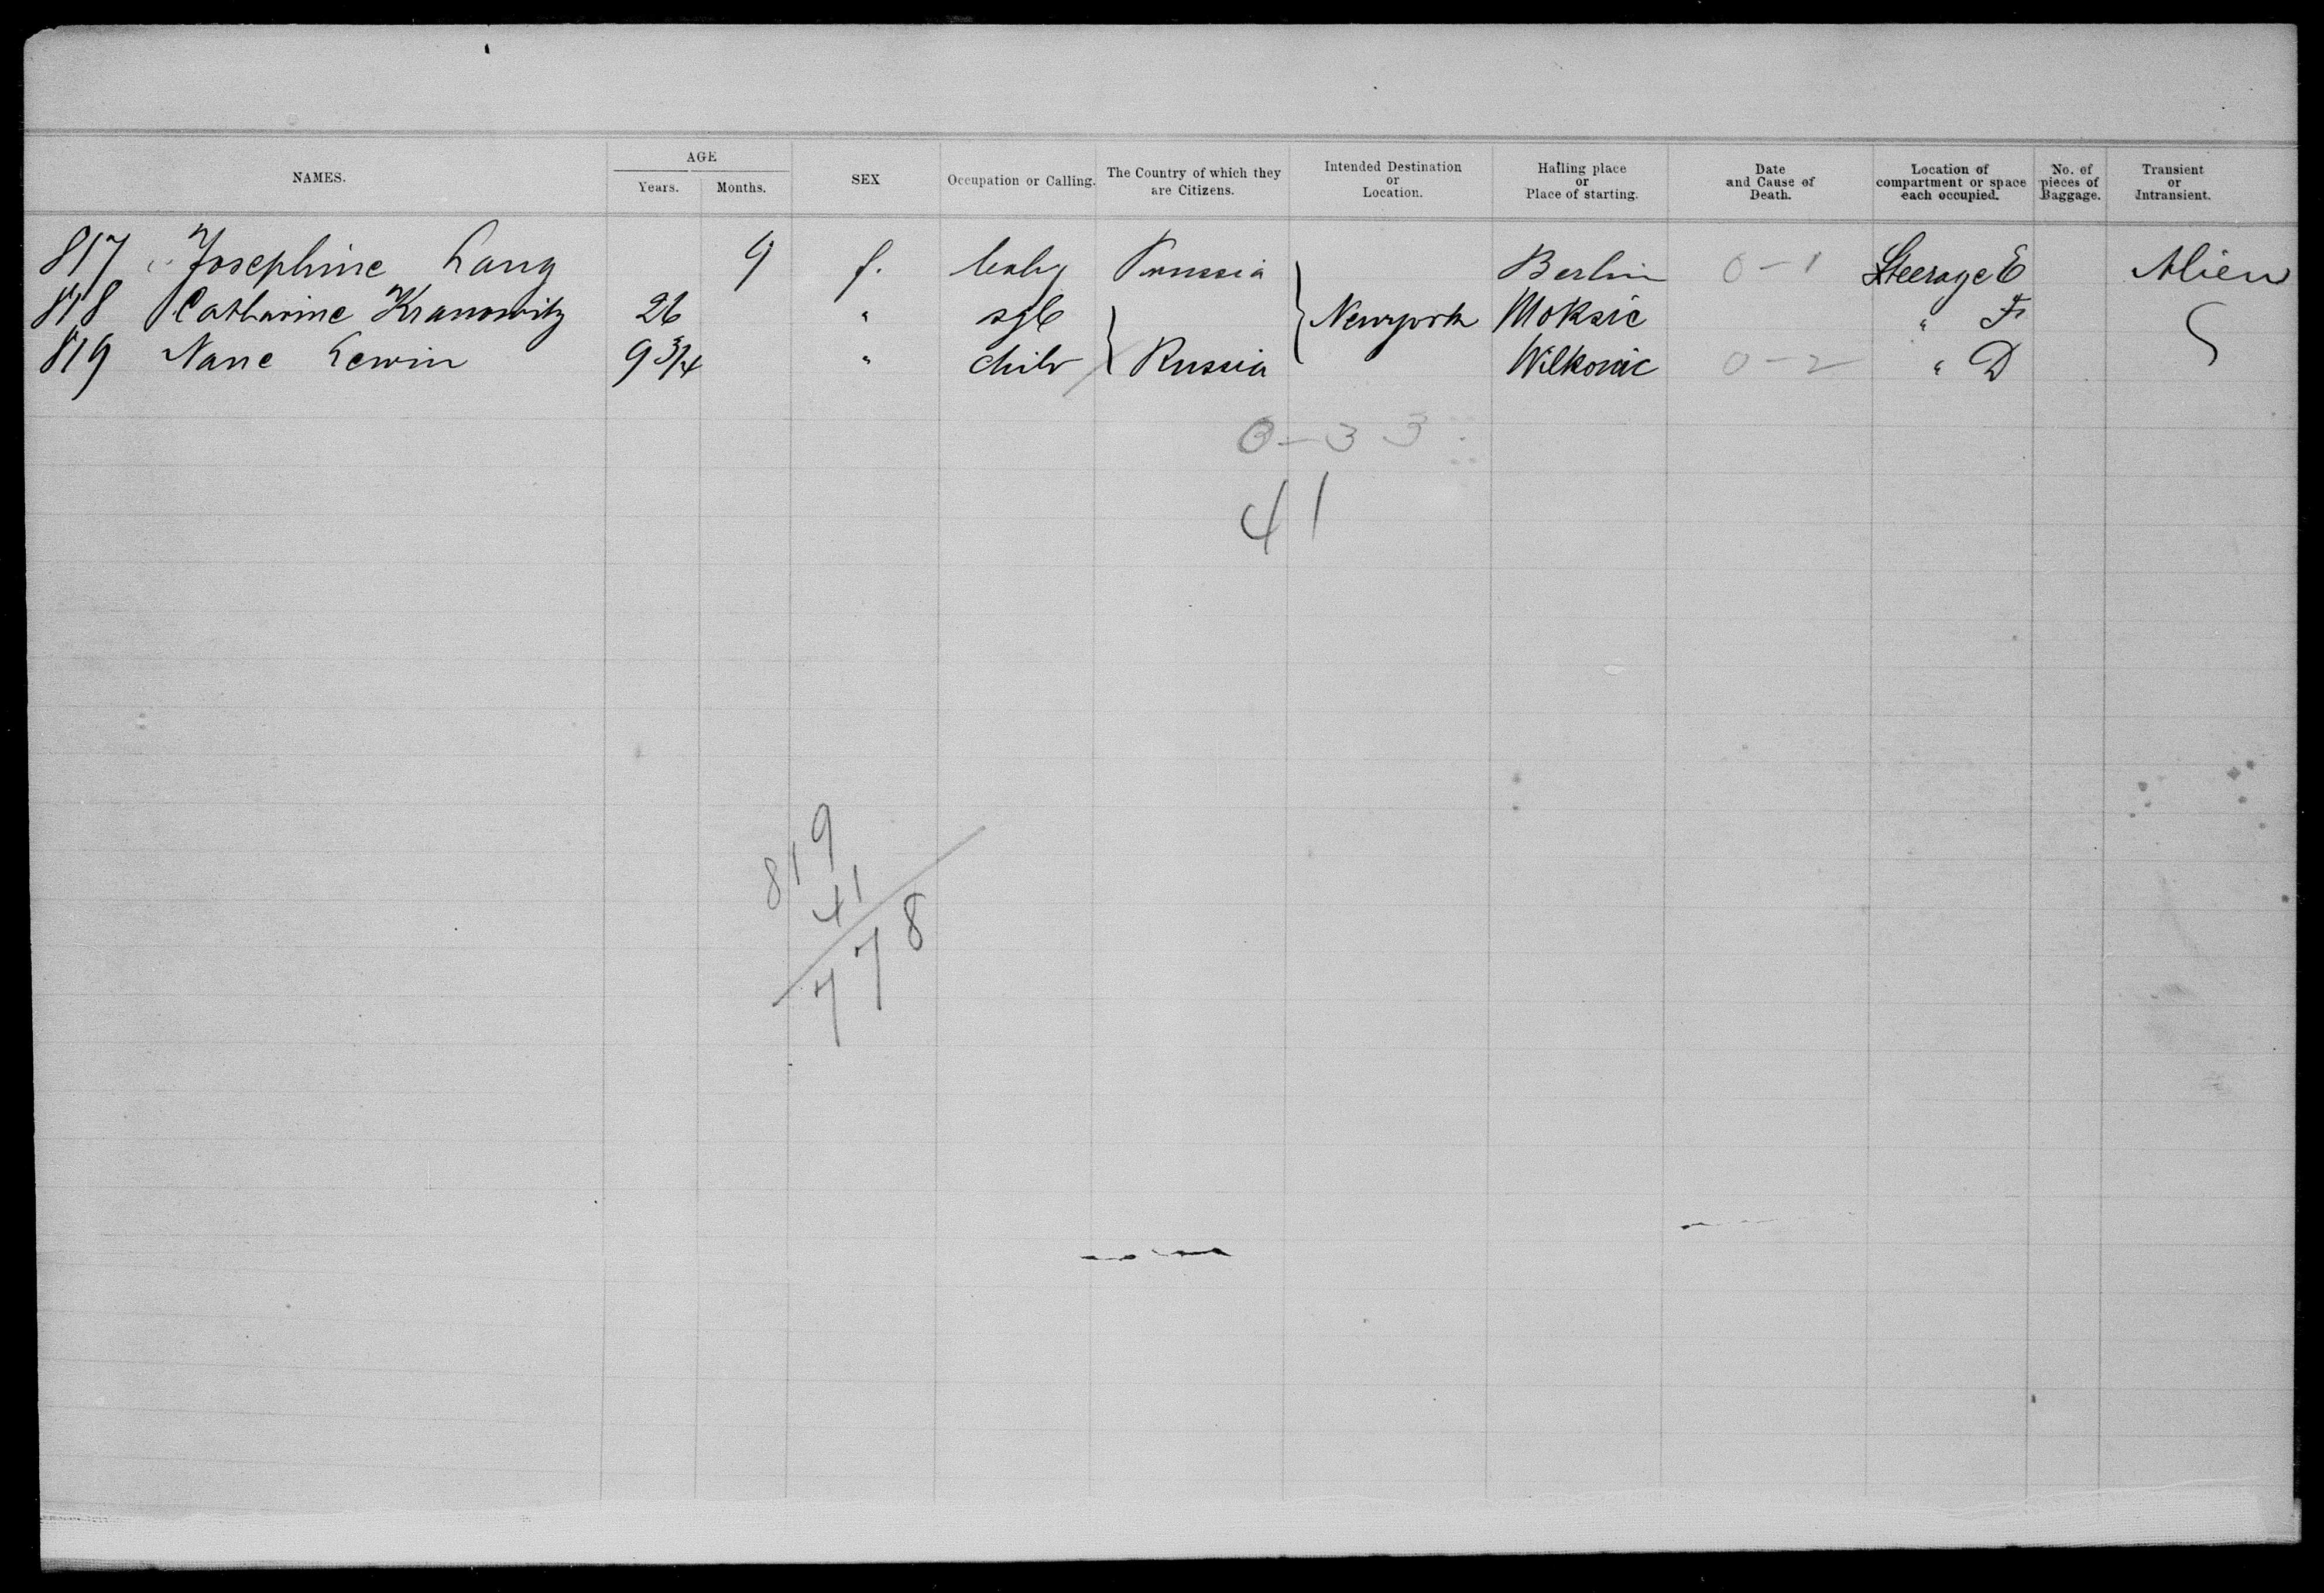 NAMES. AGE Years. Months. SEX Occupation or Calling. The Country of which they are Citizens. Intended Destination or Location. Hailing place or Place of starting. Date and Cause of Death. Location of compartment or space each occupied. No. of pieces of Baggage. Transient or Intransient.
817 Josephine Lang 9 f. baby Prussia Berlin 0-1 Steerage E Alien
818 Catharine Kranowitz 26 " sgl Newyork Moksic " F
819 Nane Lewin 9 3/4 " child Russia Wilkovic 0-2 " D
0-33
41
819
41
778